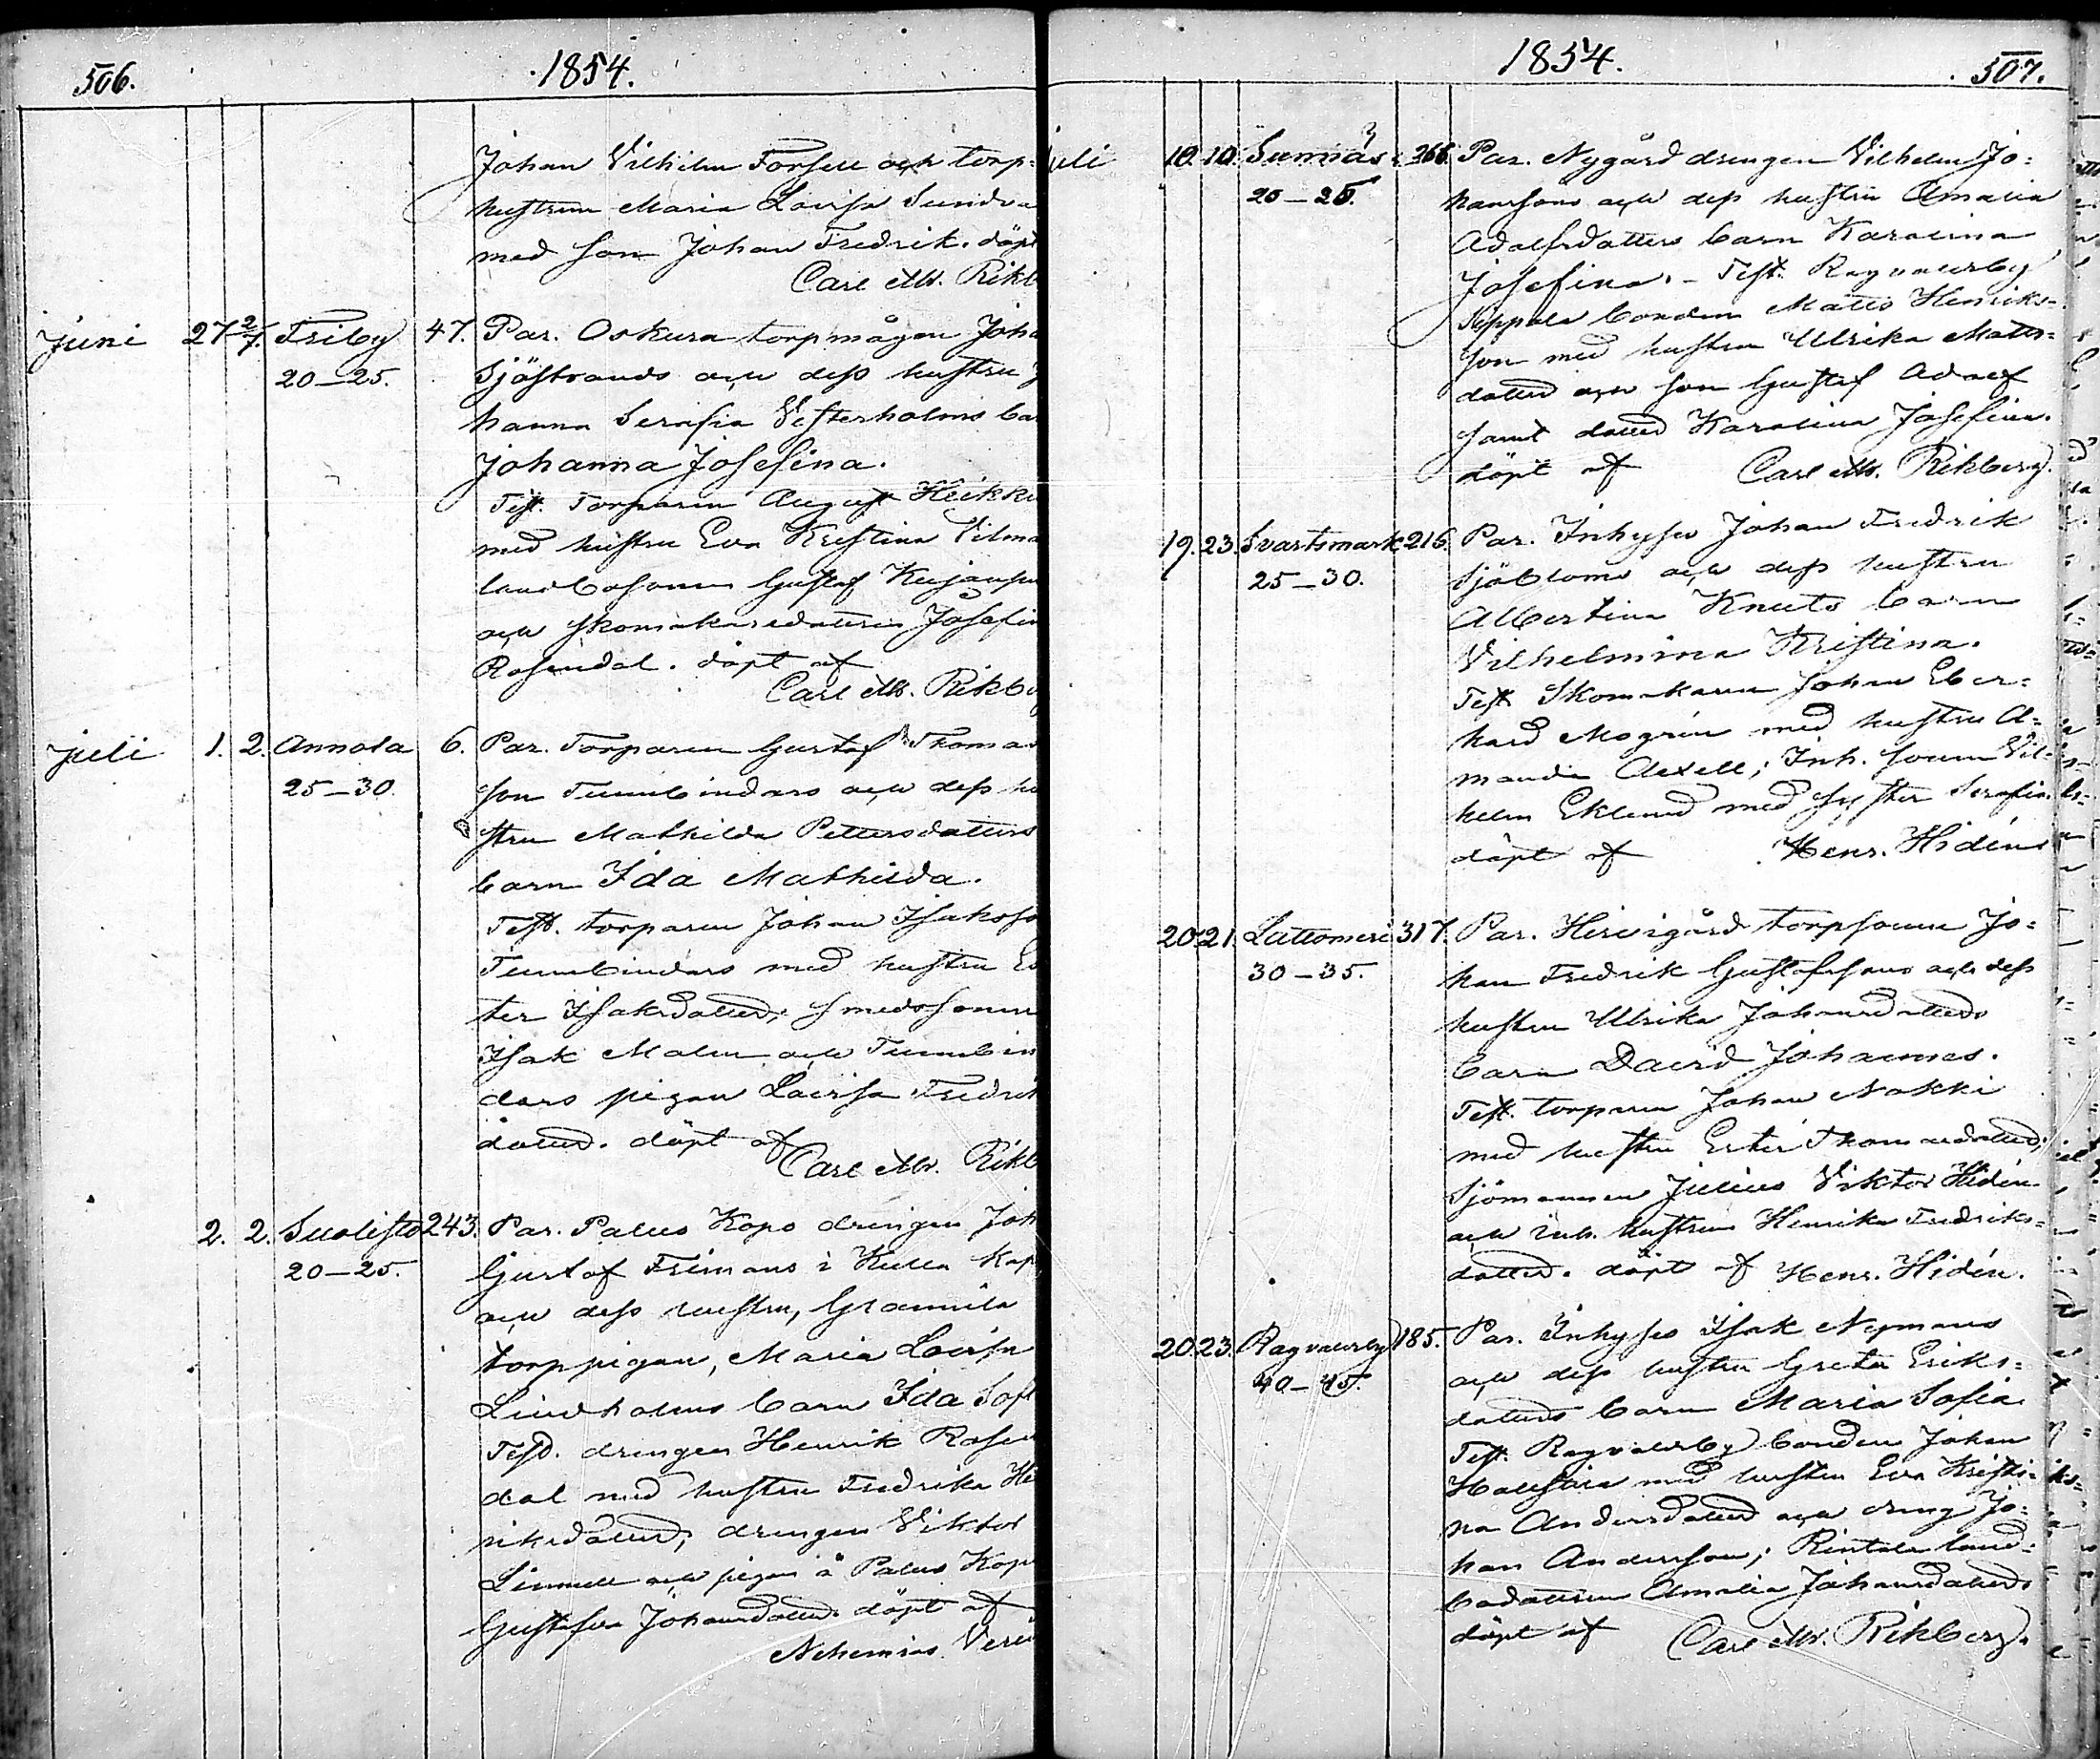 506.
1854.
Johan Vilhelm Forsell och torp-
hustrun Maria Lovisa Sundva
med son Johan Fredrik. döpt
Carl M. Rikb
Juni 27 2/7. Friby 47. Par. Oskura torpmågen Joha
20–25. Sjöstrands och dess hustru J
hanna Serafia Vesterholms ba
Johanna Josefina.
Test. Torparen August Heikki
med hustru Eva Kristina Vilma
landbosonen Gustaf Kujanpä
och skomakaredottren Josefin
Rosendal. döpt af
Carl M. Rikbe
Juli 1. 2. Annola 6. Par. Torparen Gustaf Thomas
25–30. son Tunnbindars och dess hu
stru Mathilda Pettersdotters
barn Ida Mathilda.
Test. torparen Johan Isaksso
Tunnbindars med hustru Es
ter Isaksdotter, smedssonen
Isak Malm och Tunnbin
dars pigan Lovisa Fredrik
dotter. döpt af
Carl M. Rikb
2. 2. Suolisto 243. Par. Palus Kopo drengen Joh
20–25. Gustaf Frimans i Kulla Kap
och dess hustru, Grannila
torppigan, Maria Lovisa
Lindholms barn Ida Sofi
Test. drengen Henrik Rosen
dal med hustru Fredrika He
riksdotter, drengen Viktor
Linnell och pigan å Palus Kopo
Gustafva Johansdotter. döpt af
Nehemias Veru
1854.
507.
uli 10. 10. Sumiäs 266. Par. Nygård drengen Vilhelm Jo-
20–25. hanssons och dess hustru Amalia
Adolfsdotters barn Karolina
Josefina. – Test. Ragvaldsby
Seppälä bonden Matts Henriks-
son med hustru Ulrika Matts-
dotter och son Gustaf Adolf
samt dotter Karolina Josefina.
döpt af Carl M. Rikberg.
19. 23. Svartsmark 216. Par. Inhyses Johan Fredrik
25–30. Sjöbloms och dess hustru
Albertina Knuts barn
Vilhelmina Kristina.
Test Skomakaren Johan Eber-
hard Mogren med hustru A-
manda Axell; Inh. sonen Vil-
helm Eklund med syster Serafia.
döpt af Henr. Hidén
20. 21. Lattomeri 317. Par. Hirvigård torpsonen Jo-
30–35. han Fredrik Gustafssons och dess
hustru Ulrika Johansdotters
barn David Johannes.
Test. torparen Johan Nokki
med hustru Ester Thomasdotter;
Sjömannen Julius Viktor Hidén
och inh. hustrun Henrika Fredriks-
dotter. döpt af Henr. Hidén.
20. 23. Ragvaldsby 185. Par. Inhyses Isak Nymans
40–45. och dess hustru Greta Eriks-
dotters barn Maria Sofia
Test. Ragvaldsby bonden Johan
med hustru Eva Kristi-
na Andersdotter och dreng Jo-
han Andersson; Rintala land-
bodottren Amalia Johansdotter.
döpt af Carl M. Rikberg.